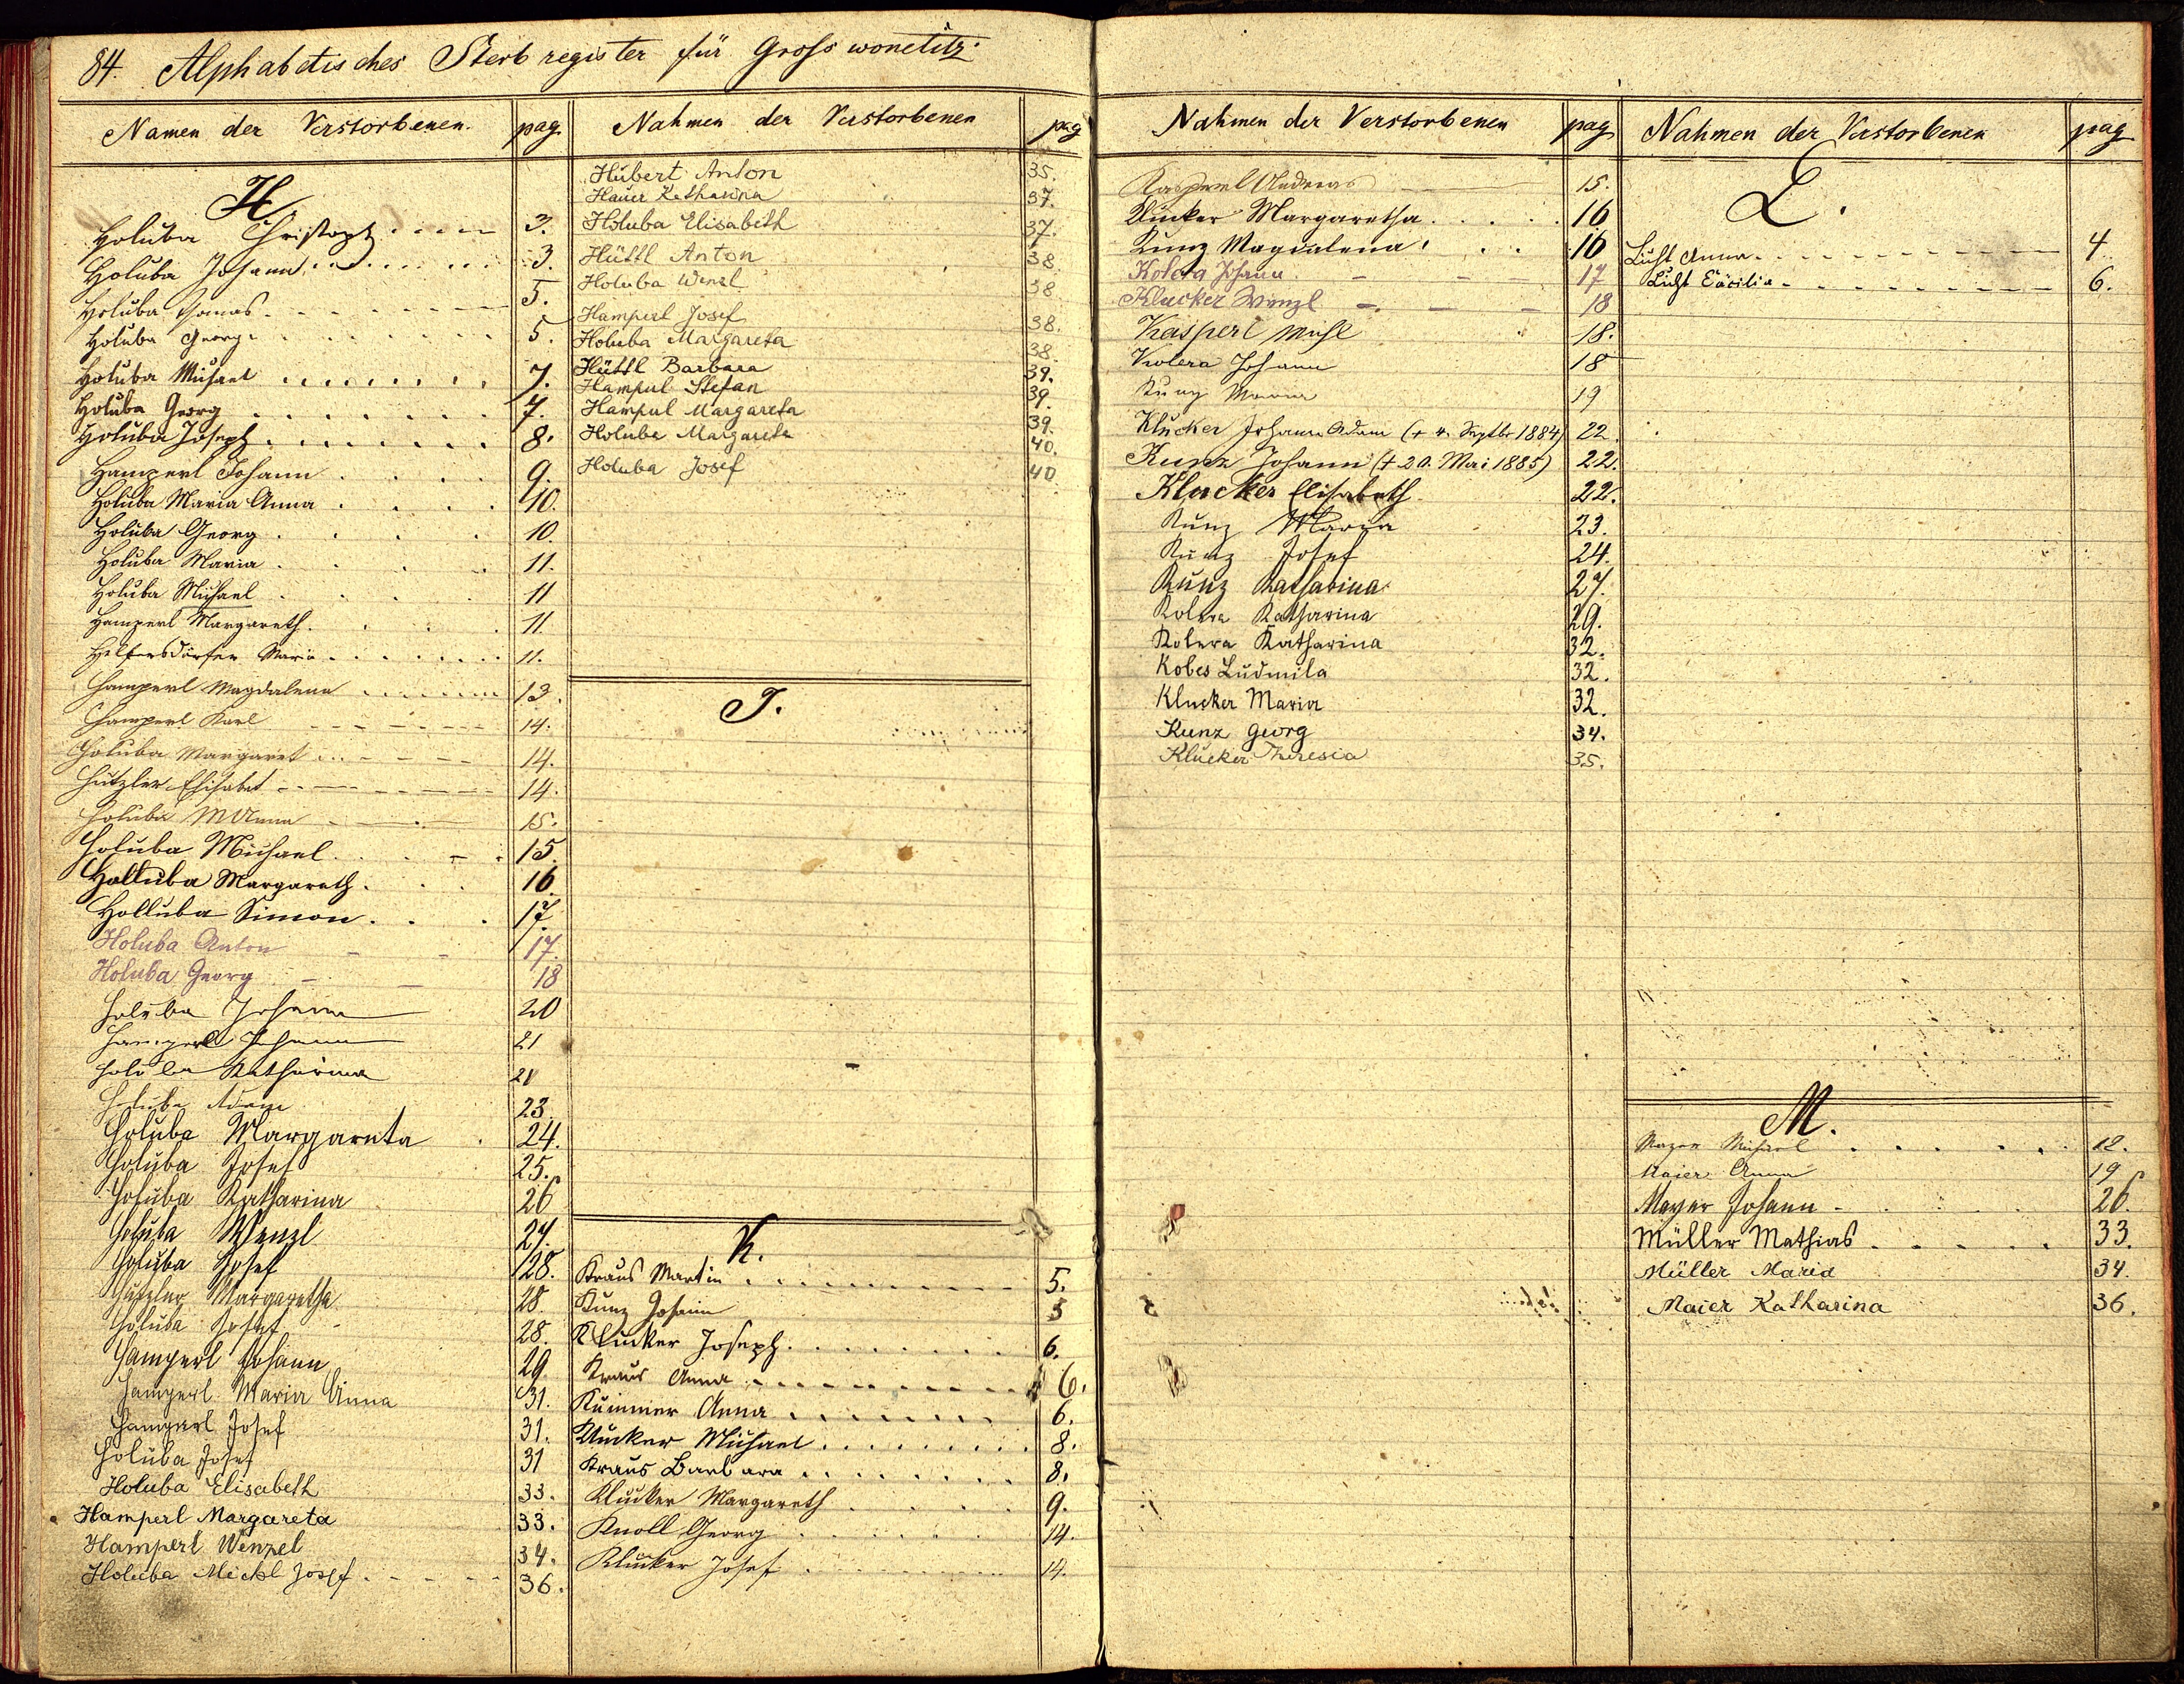 84. Alphabetisches Sterb register für Gross wonetitz.
Namen der Verstorbenen. pag.
H
Holuba Christoph 3.
Holuba Johann 3.
Holuba Thomas 5.
Holuba Georg 5.
Holuba Michael 7.
Holuba Georg 7.
Holuba Joseph 8.
Hamperl Johann 9.
Holuba Maria Anna 10.
Holuba Georg 10.
Holuba Maria 11.
Holuba Michael 11
Hamperl Margareth. 11.
Helfersdörfer Maria 11.
Hamperl Magdalena 13.
Hamperl Karl 14.
Holuba Margaret 14.
Hutzler Elisabet 14.
Holuba M Anna 15.
Holuba Michael 15.
Holluba Margareth. 16.
Holluba Simon. 17.
Holuba Anton 17.
Holuba Georg 18
Holuba Johann 20
Hamperl Johann 21
Holuba Katharina 21
Holuba Adam 23.
Holuba Margareta 24.
Holuba Josef 25.
Holuba Katharina 26
Holuba Wenzl 27.
Holuba Josef 28.
Hutzler Margaretha 28.
Holuba Josef 28.
Hamperl Johann 29.
Hamperl Maria Anna 31.
Hamperl Josef 31.
Holuba Josef 31
Holuba Elisabeth 33.
Hamperl Margareta 33.
Hamperl Wenzel 34.
Holuba Michl Josef 36.
Nahmen der Verstorbenen pag
Hubert Anton 35.
Hauer Katharina 37.
Holuba Elisabeth 37.
Hüttl Anton 38
Holuba Wenzl 38
Hamperl Josef 38.
Holuba Margareta 38.
Hüttl Barbara 39.
Hampul Stefan 39.
Hampul Margareta 39.
Holuba Margareta 40.
Holuba Josef 40
J.
K.
Kraus Martin 5.
Kunz Johann 5
Klucker Joseph. 6.
Kraus Anna 6.
Kummer Anna 6.
Klucker Michael 8.
Kraus Barbara 8.
Klucker Margareth 9.
Knoll Georg 14.
Klucker Josef 14.
Nahmen der Verstorbenen pag
Kasperl Andreas 15.
Klucker Margaretha. 16
Kunz Magdalena 16
Kolera Johann. 17
Klucker Wenzl 18
Kasperl Michl 18.
Kolera Johann 18
Kunz Maria 19
Klucker Johann Adam (+ 4. Septbr 1884) 22.
Kunz Johann (+ 20. Mai 1885) 22.
Klucker Elisabeth 22.
Kunz Maria 23.
Kunz Josef 24.
Kunz Katharina 27.
Kolera Katharina 29.
Kolera Katharina 32.
Kobes Ludmila 32.
Klucker Maria 32.
Kunz Georg 34.
Klucker Theresia 35.
Nahmen der Verstorbenen pag
L.
Licht Anna 4
Licht Cäcilia 6.
M.
Mayer Michael 12.
Maier Anna 19
Mayer Johann 26.
Müller Mathias 33.
Müller Maria 34.
Maier Katharina 36.